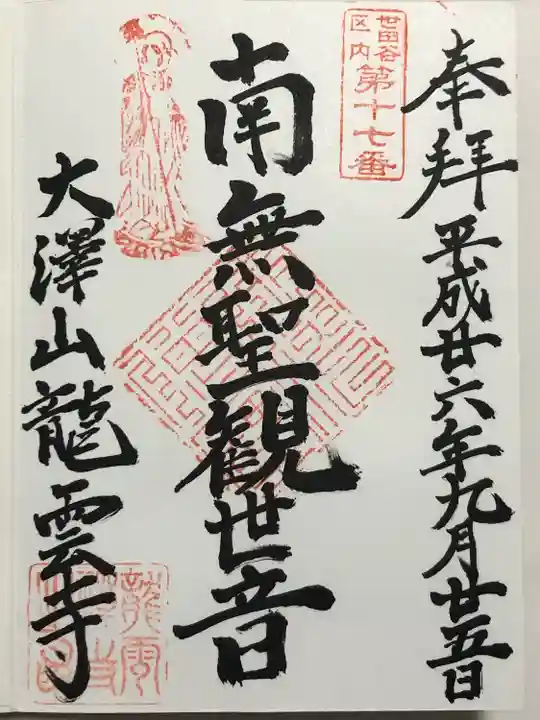 奉拝 平成廿六年九月廿五日
世田谷
区内
第十七番
南無聖観世音
大澤山龍雲寺